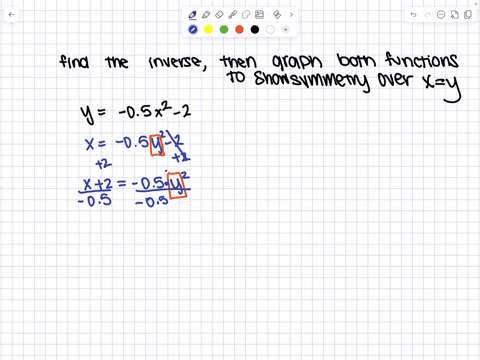 find the inverse, then graph both functions
to show symmetry over x=y
y = -0.5x² -2
x = -0.5y² -2
+2 +2
x+2 = -0.5·y²
-0.5 -0.5